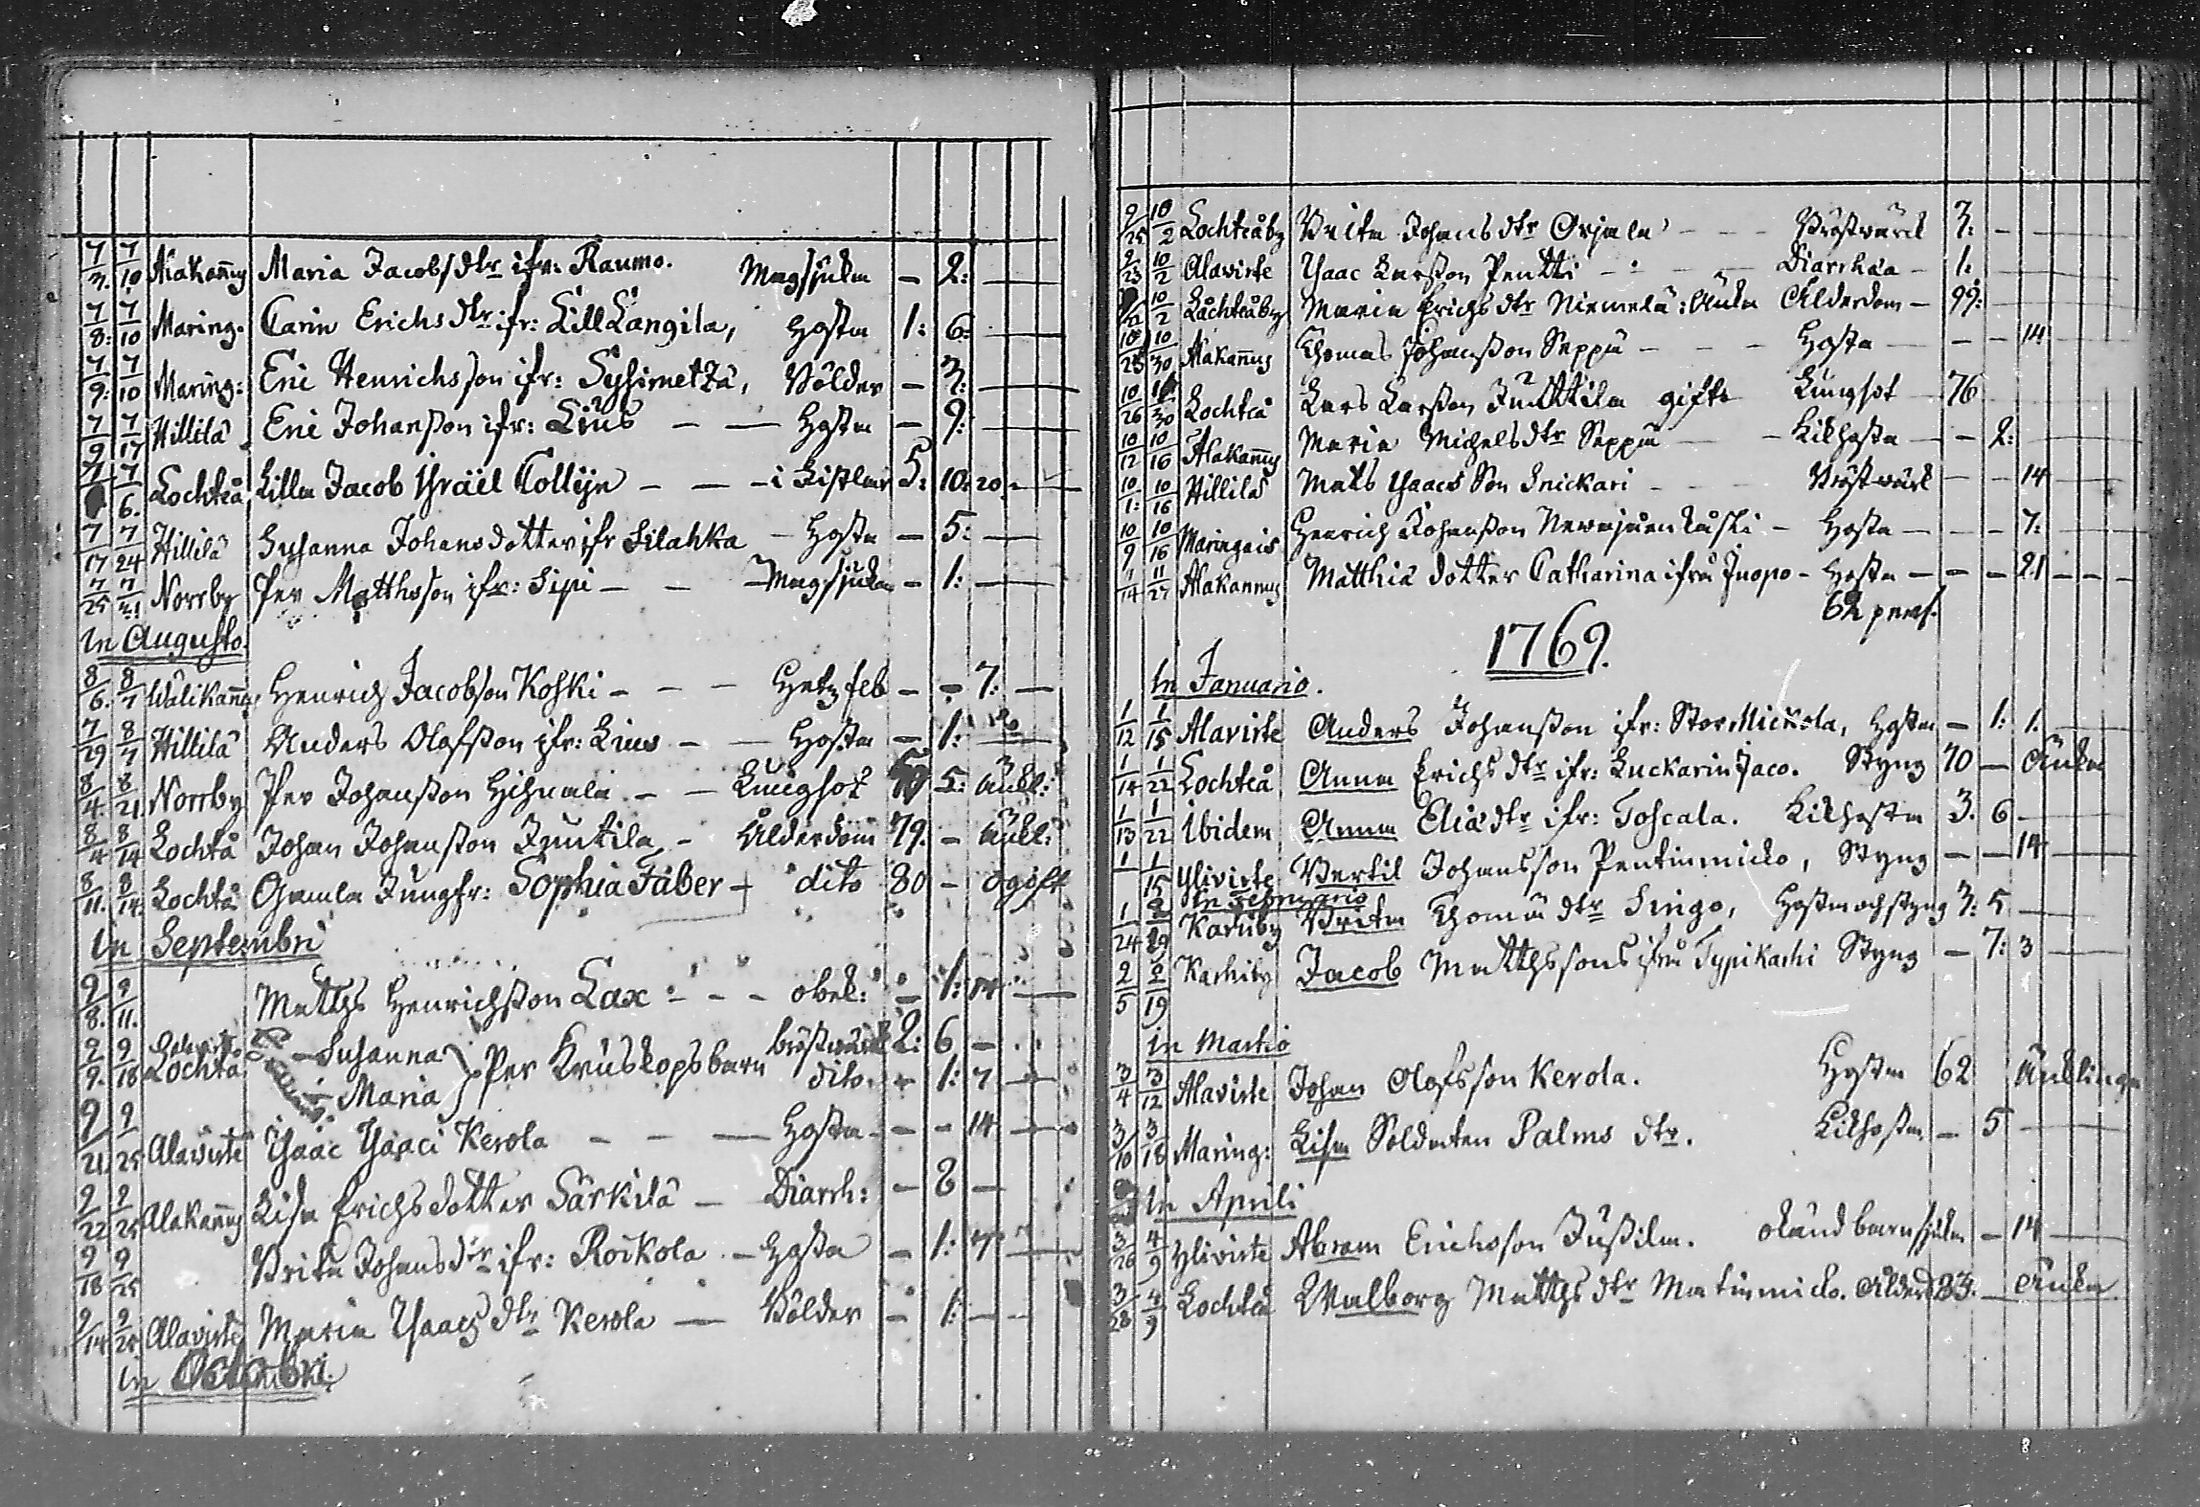 7/3. 7/10 Alakannus Maria Jacobs dtr ifr: Raumo. Magsjuka – 2: –
7/8: 7/10 Maring. Carin Erichs dtr ifr: Lill Långila, Hosta 1: 6: –
7/9: 7/10 Maring: Eric Henrichsson ifr: Syhimetzä, Bölder – 3: –
7/9 7/17 Hillilä Eric Johansson ifr: Lius – – Hosta – 9: –
7/ 7/6. Lochteå Lilla Jacob Israël Collijn – – – i Kistlar 5: 10: 20 – –
7/17 7/24 Hillilä Susanna Johans dotter ifr Silahka – Hosta – 5: –
7/25 7/31 Norrby Per Matthsson ifr: Sipi – – – Magsjuka – 1: –
In Augusto.
8/6. 8/7 Wälikannus Henrich Jacobson Koski – – – Hetz feb – – 7: –
7/29 8/7 Hillilä Anders Olofsson ifr: Lius – – Hosta – 1: –
8/4. 8/21 Norrby Per Johansson Hihnala – – Lungsot 5: änkl:
8/4 8/14 Lochtå Johan Johansson Juntila – Ålderdom 79. – änkl:
8/11. 8/14. Lochtå Gamla Jungfr: Sophia Faber – dito 80 – ogift
In Septembri
9/8. 9/11. Matths Henrichsson Lax – – – obek: – 1: 14 –
9/9. 9/18 Lochtå – Susanna } Per Kruskops barn bröstwärk 2: 6 –
– Maria } dito. – 1: 7 –
9/21 9/25 Alaviste Isaac Isaaci Kerola – – – Hosta – – 14 –
9/22 9/25 Alakannus Lisa Erichs dotter Särkilä – Diarrh: – 8 –
9/18 9/25 Brita Johans dtr ifr: Roikola – Hosta – 1: 7 –
9/14 9/25 Alaviste Maria Isaacs dtr Kerola – Bölder – 1: – –
In Octobri.
9/25 10/2 Lochteåby Brita Johans dtr Orjala – – – Bröstwärck 3: –
9/23 10/2 Alaviste Isaac Larsson Pentti – – – Diarrhæa – 1: –
10/2 Låchteåby Maria Erichs dtr Niemelä: Änka Ålderdom – 99: –
10/25 10/30 Alakannus Thomas Johansson Seppä – – – Hosta – – – 14
10/26 10/30 Lochteå Lars Larsson Junttila gift Lungsot – 76
10/12 10/16 Alakannus Maria Michelsdtr Seppä – – Kikhosta – – 2: –
10/1: 10/16 Hillilä Mats Isaacs Son Snickari – – Bröstwärck – – 14
10/9 10/16 Maringais Henrich Johansson Newajuenkaski – Hosta – – – 7: –
11/14 11/27 Alakannus Matthiä dotter Catharina ifrå Juopo – Hosta – – – 21 – – –
62 pers.
1769.
In Januario.
1/12 1/15 Alaviste Anders Johansson ifr: StorMickola, Hosta – 1: 1. –
1/14 1/22 Lochteå Anna Erichs dtr ifr: Luckarin Jaco. Styng 70 – Änka
1/13 1/22 Ibidem Anna Eliædtr ifr: Toscala. Kikhosta 3. 6 –
1/ 1/15 Yliviste Bertil Johansson Pentinmicko, Styng – – 14 –
In Februario
1/24 2/19 Karhiby Brita Thomæ dtr Singo, Hosta och styng 3: 5 –
2/5 2/19 Karhiby Jacob Matthssons ifrå Typikaski Styng – 7: 3 –
in Martio
3/4 3/12 Alaviste Johan Olofsson Kerola. Hosta 62 Änklinge
3/10 3/18 Maring: Lisa Soldaten Palms dtr. Kikhosta – 5 –
In Aprili
3/26 4/9 Yliviste Abram Erichsson Jussila. okänd barnsjuka – 14 –
3/28 4/9 Lochteå Walborg Matths dtr Matinmicko. Ålderd 83. – Änka